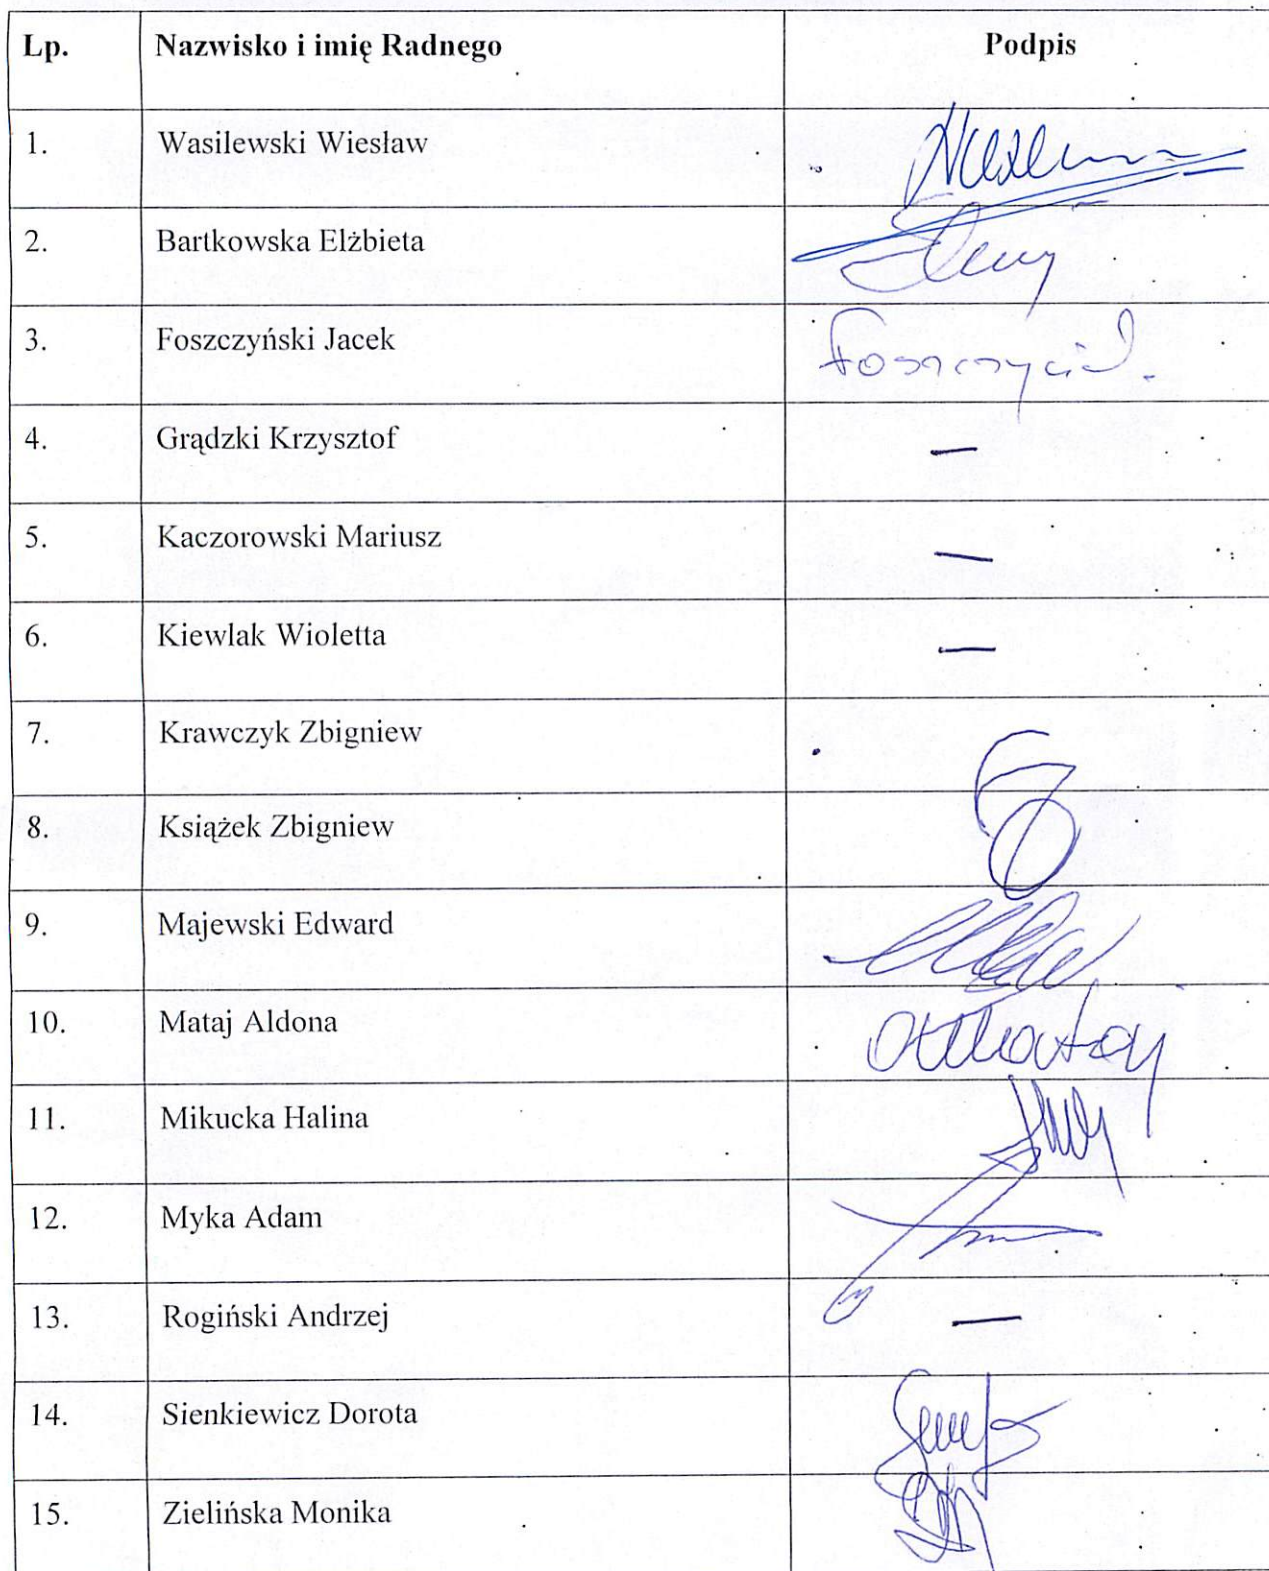 Lp. Nazwisko i imię Radnego Podpis
1. Wasilewski Wiesław
2. Bartkowska Elżbieta
3. Foszczyński Jacek
4. Grądzki Krzysztof —
5. Kaczorowski Mariusz —
6. Kiewlak Wioletta —
7. Krawczyk Zbigniew
8. Książek Zbigniew
9. Majewski Edward
10. Mataj Aldona
11. Mikucka Halina
12. Myka Adam
13. Rogiński Andrzej —
14. Sienkiewicz Dorota
15. Zielińska Monika